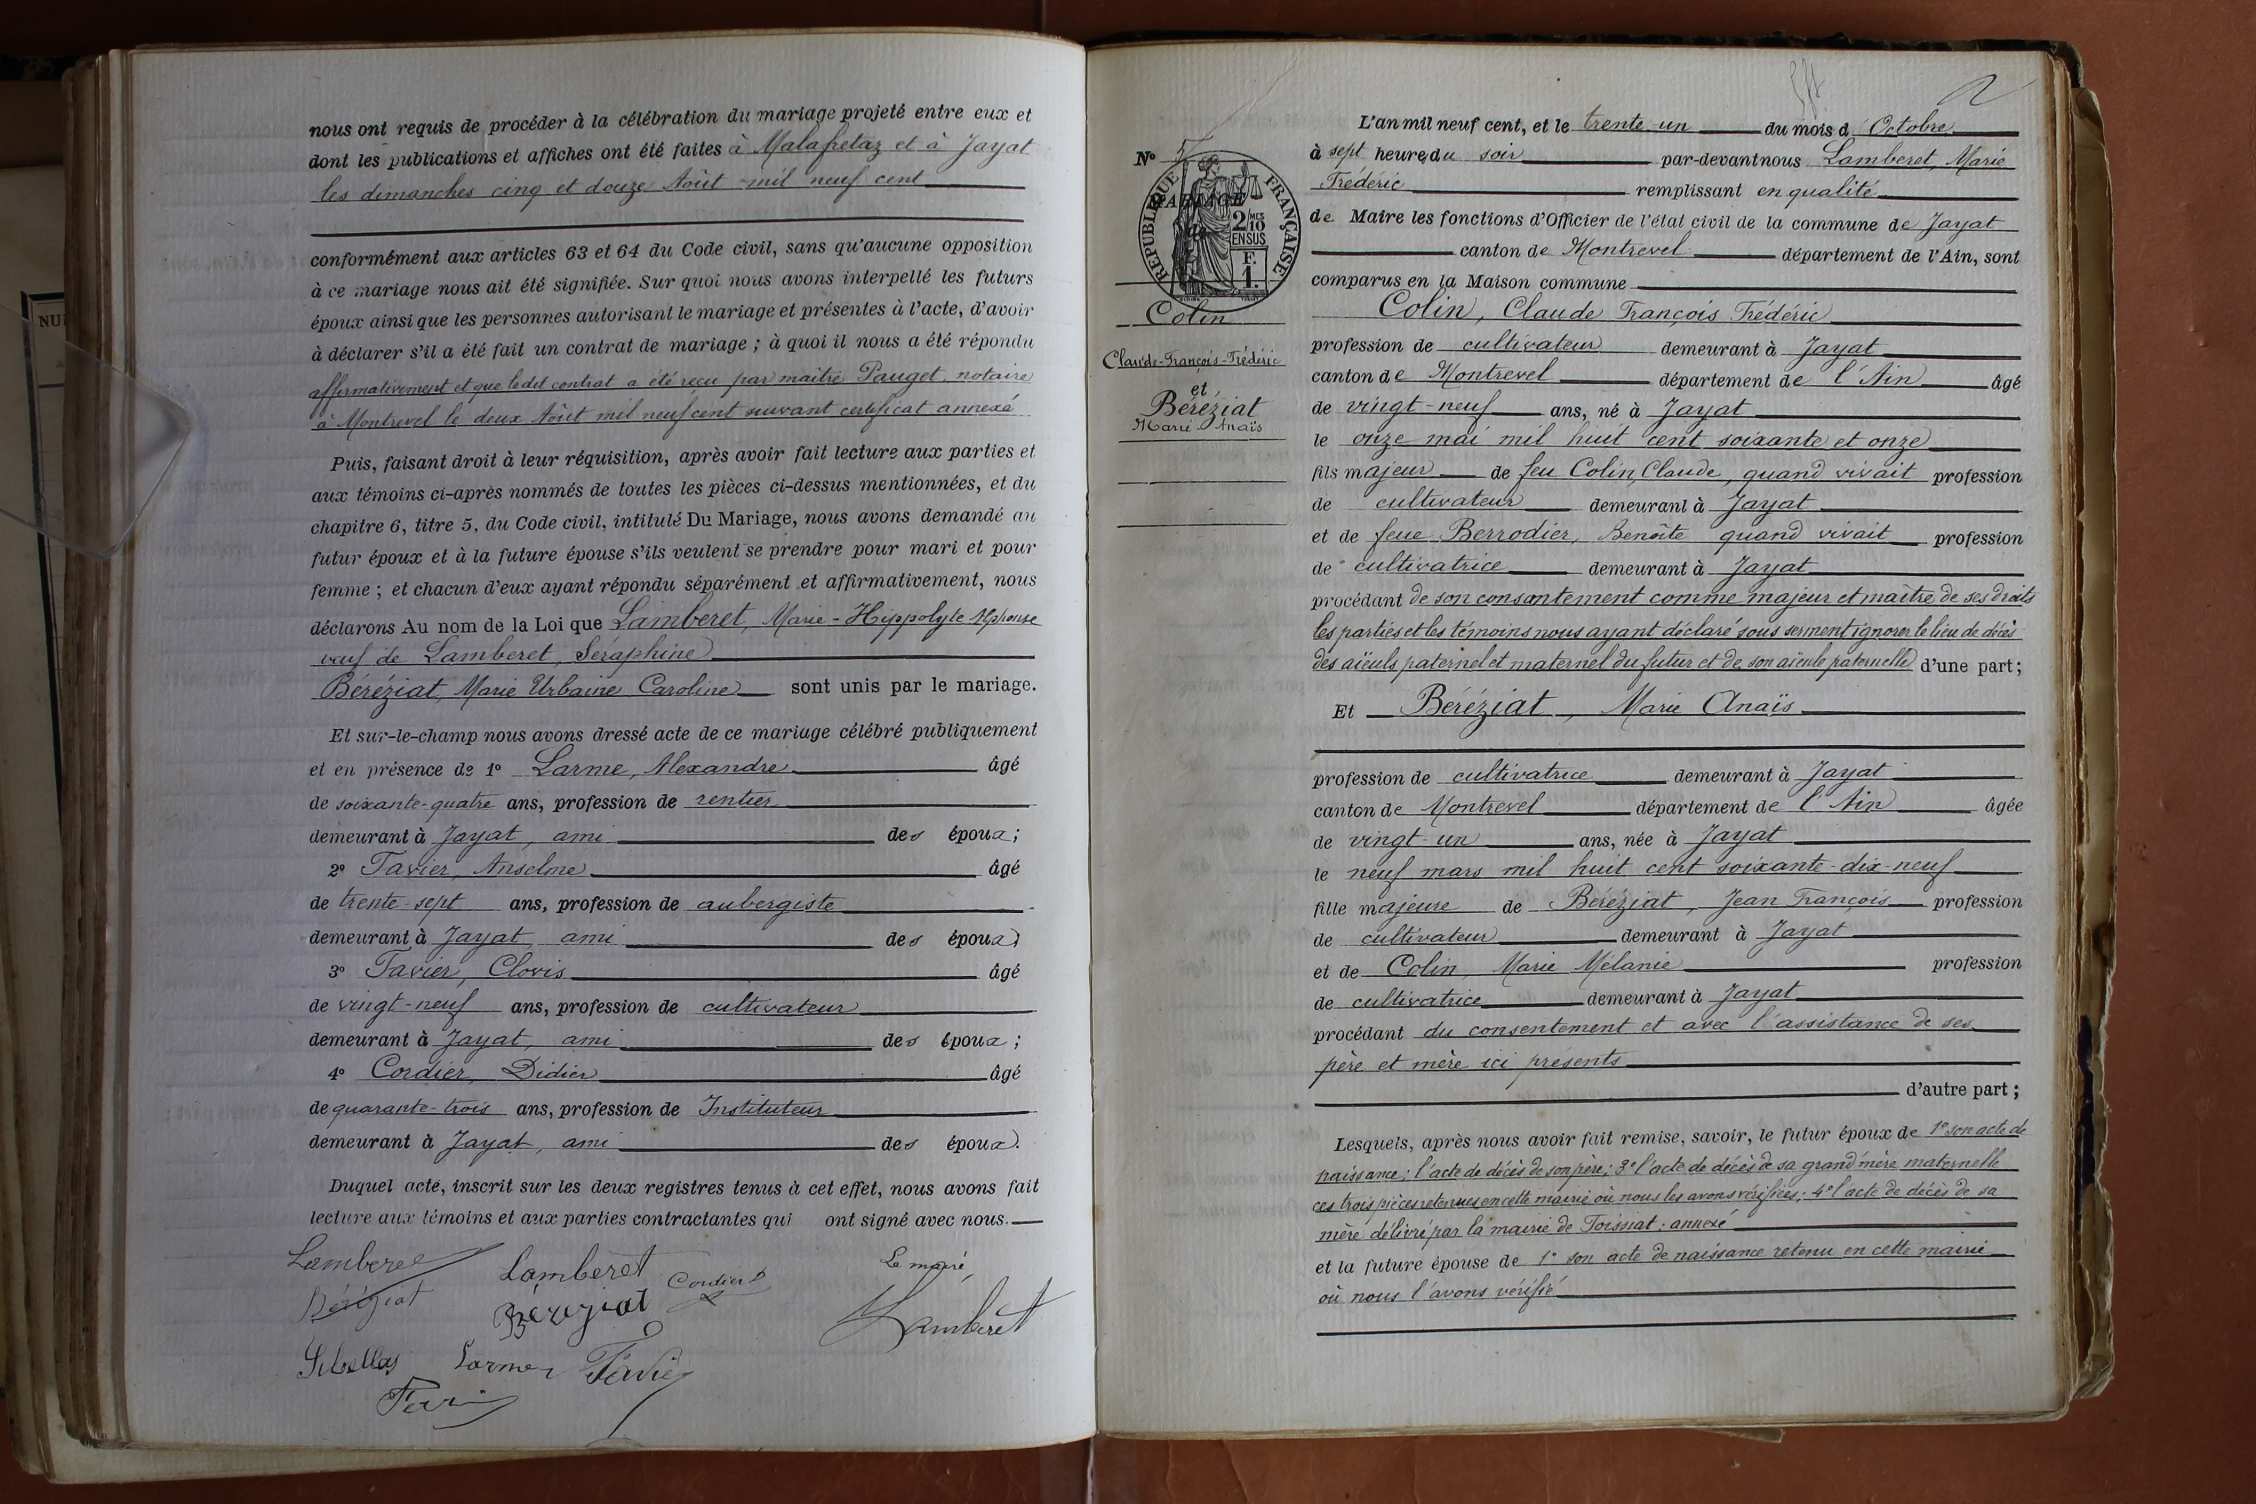 nous ont requis de procéder à la célébration du mariage projeté entre eux et
dont les publications et affiches ont été faites à Malafretaz et à Jayat
les dimanches cinq et douze Août mil neuf cent
conformément aux articles 63 et 64 du Code civil, sans qu'aucune opposition
à ce mariage nous ait été signifiée. Sur quoi nous avons interpellé les futurs
époux ainsi que les personnes autorisant le mariage et présentes à l'acte, d'avoir
à déclarer s'il a été fait un contrat de mariage ; à quoi il nous a été répondu
affirmativement et que ledit contrat a été reçu par maître Pauget, notaire
à Montrevel le deux Août mil neuf cent suivant certificat annexé
Puis, faisant droit à leur réquisition, après avoir fait lecture aux parties et
aux témoins ci-après nommés de toutes les pièces ci-dessus mentionnées, et du
chapitre 6, titre 5, du Code civil, intitulé Du Mariage, nous avons demandé au
futur époux et à la future épouse s'ils veulent se prendre pour mari et pour
femme ; et chacun d'eux ayant répondu séparément et affirmativement, nous
déclarons Au nom de la Loi que Lamberet, Marie-Hippolyte Alphonse
veuf de Lamberet, Séraphine
Béréziat, Marie Urbaine Caroline sont unis par le mariage.
Et sur-le-champ nous avons dressé acte de ce mariage célébré publiquement
et en présence de 1° Larme, Alexandre âgé
de soixante-quatre ans, profession de rentier
demeurant à Jayat, ami des époux ;
2° Favier, Anselme âgé
de trente-sept ans, profession de aubergiste
demeurant à Jayat, ami des époux ;
3° Favier, Clovis âgé
de vingt-neuf ans, profession de cultivateur
demeurant à Jayat, ami des époux ;
4° Cordier, Didier âgé
de quarante-trois ans, profession de Instituteur
demeurant à Jayat, ami des époux.
Duquel acte, inscrit sur les deux registres tenus à cet effet, nous avons fait
lecture aux témoins et aux parties contractantes qui ont signé avec nous.
Lamberet Lamberet Cordier D Le maire,
Béréziat Béréziat Lamberet
Larme Favier
N° 5
RÉPUBLIQUE FRANÇAISE
MARIAGE
de
2/10 MES
EN SUS
F.
1.
Colin
Claude-François-Frédéric
et
Béréziat
Marie-Anaïs
L'an mil neuf cent, et le trente-un du mois d'Octobre
à sept heures du soir par-devant nous Lamberet, Marie
Frédéric remplissant en qualité
de Maire les fonctions d'Officier de l'état civil de la commune de Jayat
canton de Montrevel département de l'Ain, sont
comparus en la Maison commune
Colin, Claude François Frédéric
profession de cultivateur demeurant à Jayat
canton de Montrevel département de l'Ain âgé
de vingt-neuf ans, né à Jayat
le onze mai mil huit cent soixante et onze
fils majeur de feu Colin, Claude, quand vivait profession
de cultivateur demeurant à Jayat
et de feue Berrodier, Benoîte quand vivait profession
de cultivatrice demeurant à Jayat
procédant de son consentement comme majeur et maître de ses droits
les parties et les témoins nous ayant déclaré sous serment ignorer le lieu de décès
des aïeuls paternel et maternel du futur et de son aïeule paternelle d'une part ;
Et Béréziat, Marie Anaïs
profession de cultivatrice demeurant à Jayat
canton de Montrevel département de l'Ain âgée
de vingt-un ans, née à Jayat
le neuf mars mil huit cent soixante-dix-neuf
fille majeure de Béréziat, Jean François profession
de cultivateur demeurant à Jayat
et de Colin, Marie Mélanie profession
de cultivatrice demeurant à Jayat
procédant du consentement et avec l'assistance de ses
père et mère ici présents
d'autre part ;
Lesquels, après nous avoir fait remise, savoir, le futur époux de 1° son acte de
naissance ; l'acte de décès de son père ; 3° l'acte de décès de sa grand'mère maternelle
ces trois pièces retenues en cette mairie où nous les avons vérifiées ; 4° l'acte de décès de sa
mère délivré par la mairie de Foissiat : annexé
et la future épouse de 1° son acte de naissance retenu en cette mairie
où nous l'avons vérifié